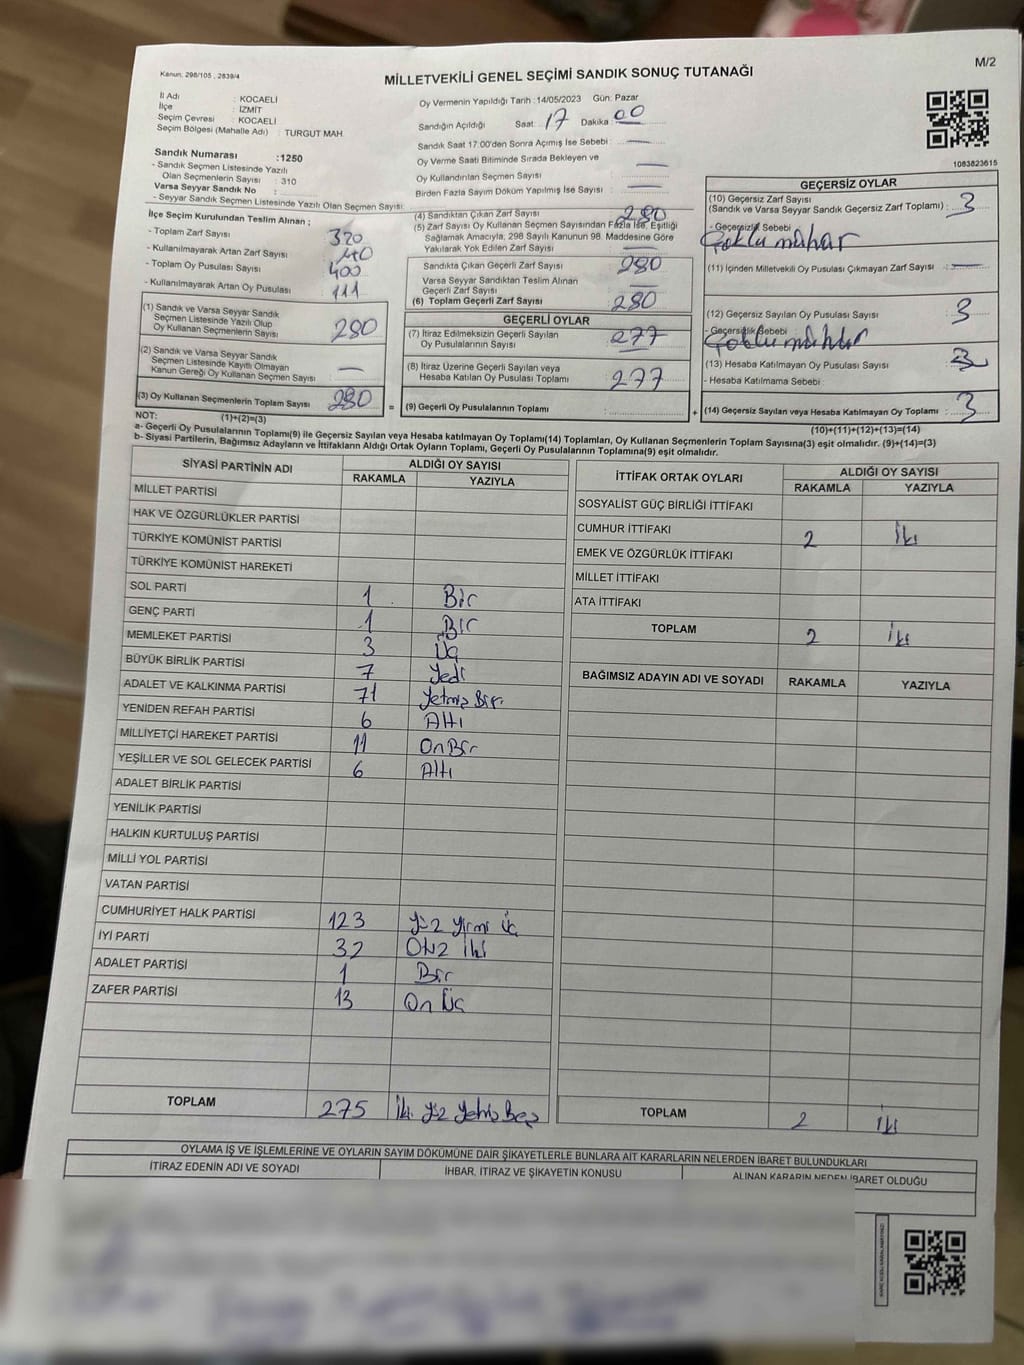 Kanun: 298/105 , 2839/4
MİLLETVEKİLİ GENEL SEÇİMİ SANDIK SONUÇ TUTANAĞI
M/2
İl Adı : KOCAELİ
İlçe : İZMİT
Seçim Çevresi : KOCAELİ
Seçim Bölgesi (Mahalle Adı) : TURGUT MAH.
Sandık Numarası :1250
- Sandık Seçmen Listesinde Yazılı
Olan Seçmenlerin Sayısı : 310
Varsa Seyyar Sandık No :
- Seyyar Sandık Seçmen Listesinde Yazılı Olan Seçmen Sayısı:
Oy Vermenin Yapıldığı Tarih :14/05/2023 Gün: Pazar
Sandığın Açıldığı Saat: 17 Dakika: 00
Sandık Saat 17:00'den Sonra Açımış İse Sebebi : —
Oy Verme Saati Bitiminde Sırada Bekleyen ve
Oy Kullandırılan Seçmen Sayısı : —
Birden Fazla Sayım Döküm Yapılmış İse Sayısı : —
1083823615
İlçe Seçim Kurulundan Teslim Alınan ;
- Toplam Zarf Sayısı : 320
- Kullanılmayarak Artan Zarf Sayısı : 40
- Toplam Oy Pusulası Sayısı : 400
- Kullanılmayarak Artan Oy Pusulası : 111
(1) Sandık ve Varsa Seyyar Sandık
Seçmen Listesinde Yazılı Olup
Oy Kullanan Seçmenlerin Sayısı : 280
(2) Sandık ve Varsa Seyyar Sandık
Seçmen Listesinde Kayıtlı Olmayan
Kanun Gereği Oy Kullanan Seçmen Sayısı : —
(3) Oy Kullanan Seçmenlerin Toplam Sayısı : 280
(4) Sandıktan Çıkan Zarf Sayısı : 280
(5) Zarf Sayısı Oy Kullanan Seçmen Sayısından Fazla İse, Eşitliği
Sağlamak Amacıyla, 298 Sayılı Kanunun 98. Maddesine Göre
Yakılarak Yok Edilen Zarf Sayısı : —
Sandıkta Çıkan Geçerli Zarf Sayısı : 280
Varsa Seyyar Sandıktan Teslim Alınan
Geçerli Zarf Sayısı : —
(6) Toplam Geçerli Zarf Sayısı : 280
GEÇERLİ OYLAR
(7) İtiraz Edilmeksizin Geçerli Sayılan
Oy Pusulalarının Sayısı : 277
(8) İtiraz Üzerine Geçerli Sayılan veya
Hesaba Katılan Oy Pusulası Toplamı : 277
= (9) Geçerli Oy Pusulalarının Toplamı : +
GEÇERSİZ OYLAR
(10) Geçersiz Zarf Sayısı
(Sandık ve Varsa Seyyar Sandık Geçersiz Zarf Toplamı) : 3
- Geçersizlik Sebebi
Çoklu mühar
(11) İçinden Milletvekili Oy Pusulası Çıkmayan Zarf Sayısı : —
(12) Geçersiz Sayılan Oy Pusulası Sayısı : 3
- Geçersizlik Sebebi
Çoklu mühür
(13) Hesaba Katılmayan Oy Pusulası Sayısı : 3
- Hesaba Katılmama Sebebi :
(14) Geçersiz Sayılan veya Hesaba Katılmayan Oy Toplamı : 3
NOT: (1)+(2)=(3) (10)+(11)+(12)+(13)=(14)
a- Geçerli Oy Pusulalarının Toplamı(9) ile Geçersiz Sayılan veya Hesaba katılmayan Oy Toplamı(14) Toplamları, Oy Kullanan Seçmenlerin Toplam Sayısına(3) eşit olmalıdır. (9)+(14)=(3)
b- Siyasi Partilerin, Bağımsız Adayların ve İttifakların Aldığı Ortak Oyların Toplamı, Geçerli Oy Pusulalarının Toplamına(9) eşit olmalıdır.
SİYASİ PARTİNİN ADI ALDIĞI OY SAYISI
RAKAMLA YAZIYLA
MİLLET PARTİSİ
HAK VE ÖZGÜRLÜKLER PARTİSİ
TÜRKİYE KOMÜNİST PARTİSİ
TÜRKİYE KOMÜNİST HAREKETİ
SOL PARTİ 1 Bir
GENÇ PARTİ 1 Bir
MEMLEKET PARTİSİ 3 Üç
BÜYÜK BİRLİK PARTİSİ 7 Yedi
ADALET VE KALKINMA PARTİSİ 71 Yetmiş Bir
YENİDEN REFAH PARTİSİ 6 Altı
MİLLİYETÇİ HAREKET PARTİSİ 11 On Bir
YEŞİLLER VE SOL GELECEK PARTİSİ 6 Altı
ADALET BİRLİK PARTİSİ
YENİLİK PARTİSİ
HALKIN KURTULUŞ PARTİSİ
MİLLİ YOL PARTİSİ
VATAN PARTİSİ
CUMHURİYET HALK PARTİSİ 123 Yüz Yirmi Üç
İYİ PARTİ 32 Otuz İki
ADALET PARTİSİ 1 Bir
ZAFER PARTİSİ 13 On Üç
TOPLAM 275 İki Yüz Yetmiş Beş
İTTİFAK ORTAK OYLARI ALDIĞI OY SAYISI
RAKAMLA YAZIYLA
SOSYALİST GÜÇ BİRLİĞİ İTTİFAKI
CUMHUR İTTİFAKI 2 İki
EMEK VE ÖZGÜRLÜK İTTİFAKI
MİLLET İTTİFAKI
ATA İTTİFAKI
TOPLAM 2 İki
BAĞIMSIZ ADAYIN ADI VE SOYADI RAKAMLA YAZIYLA
TOPLAM 2 İki
OYLAMA İŞ VE İŞLEMLERİNE VE OYLARIN SAYIM DÖKÜMÜNE DAİR ŞİKAYETLERLE BUNLARA AİT KARARLARIN NELERDEN İBARET BULUNDUKLARI
İTİRAZ EDENİN ADI VE SOYADI İHBAR, İTİRAZ VE ŞİKAYETİN KONUSU ALINAN KARARIN NEDEN İBARET OLDUĞU